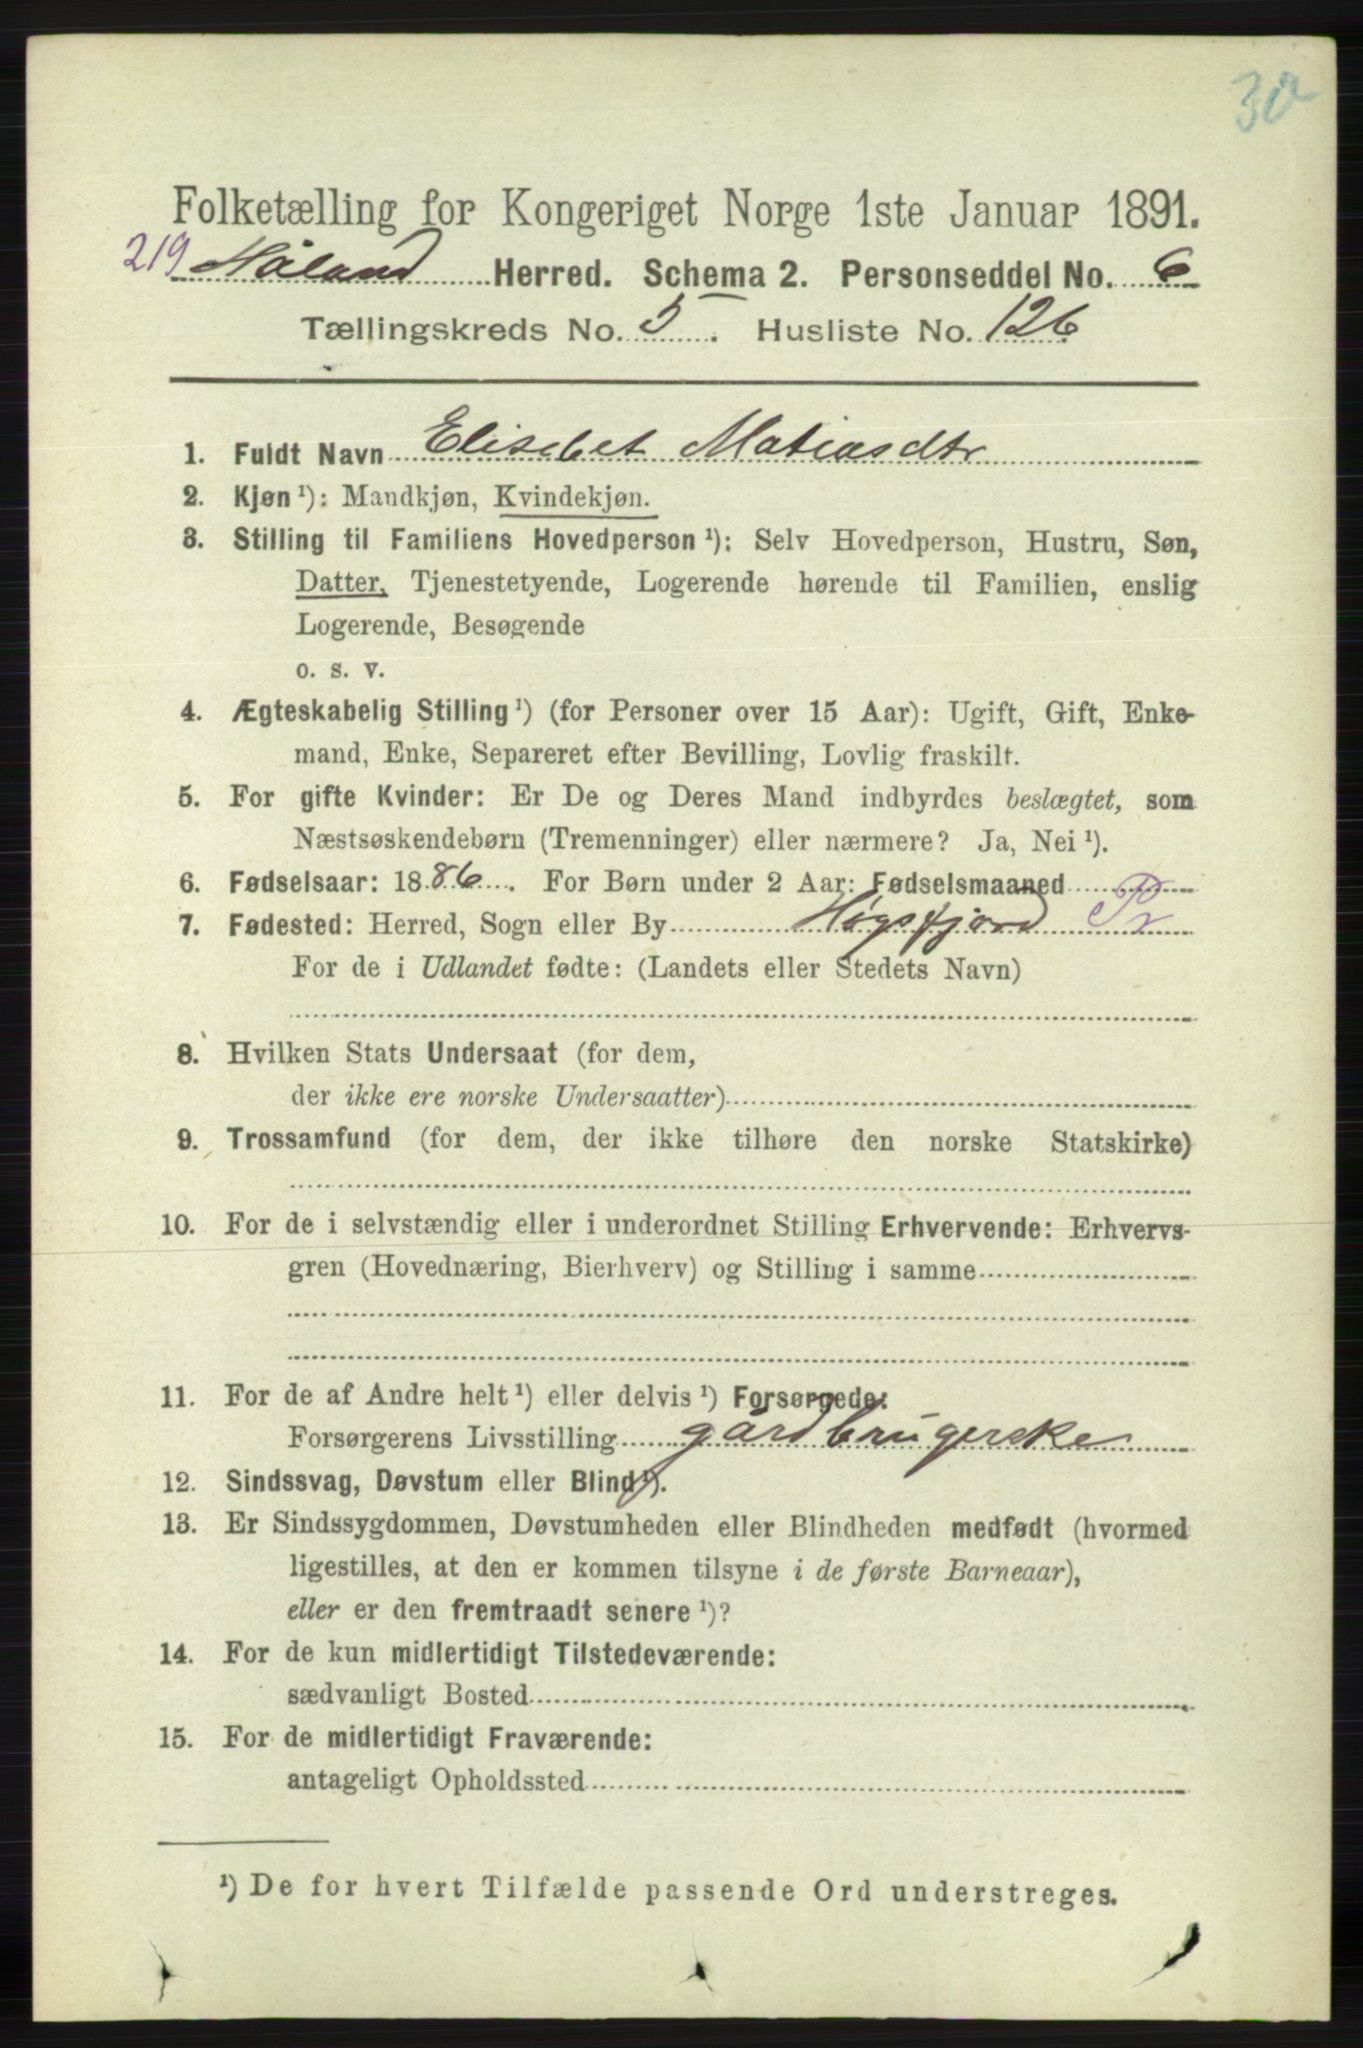 30
Folketælling for Kongeriget Norge 1ste Januar 1891.
219 Håland Herred. Schema 2. Personseddel No. 6
Tællingskreds No. 5. Husliste No. 126
1. Fuldt Navn Elisebet Matiasdtr
2. Kjøn ¹): Mandkjøn, Kvindekjøn.
3. Stilling til Familiens Hovedperson ¹): Selv Hovedperson, Hustru, Søn,
Datter, Tjenestetyende, Logerende hørende til Familien, enslig
Logerende, Besøgende
o. s. v.
4. Ægteskabelig Stilling ¹) (for Personer over 15 Aar): Ugift, Gift, Enke-
mand, Enke, Separeret efter Bevilling, Lovlig fraskilt.
5. For gifte Kvinder: Er De og Deres Mand indbyrdes beslægtet, som
Næstsøskendebørn (Tremenninger) eller nærmere? Ja, Nei ¹).
6. Fødselsaar: 1886. For Børn under 2 Aar: Fødselsmaaned
7. Fødested: Herred, Sogn eller By Høgsfjord Pr
For de i Udlandet fødte: (Landets eller Stedets Navn)
8. Hvilken Stats Undersaat (for dem,
der ikke ere norske Undersaatter)
9. Trossamfund (for dem, der ikke tilhøre den norske Statskirke)
10. For de i selvstændig eller i underordnet Stilling Erhvervende: Erhvervs-
gren (Hovednæring, Bierhverv) og Stilling i samme
11. For de af Andre helt ¹) eller delvis ¹) Forsørgede:
Forsørgerens Livsstilling gårdbrugerske
12. Sindssvag, Døvstum eller Blind ¹).
13. Er Sindssygdommen, Døvstumheden eller Blindheden medfødt (hvormed
ligestilles, at den er kommen tilsyne i de første Barneaar),
eller er den fremtraadt senere ¹)?
14. For de kun midlertidigt Tilstedeværende:
sædvanligt Bosted
15. For de midlertidigt Fraværende:
antageligt Opholdssted
¹) De for hvert Tilfælde passende Ord understreges.